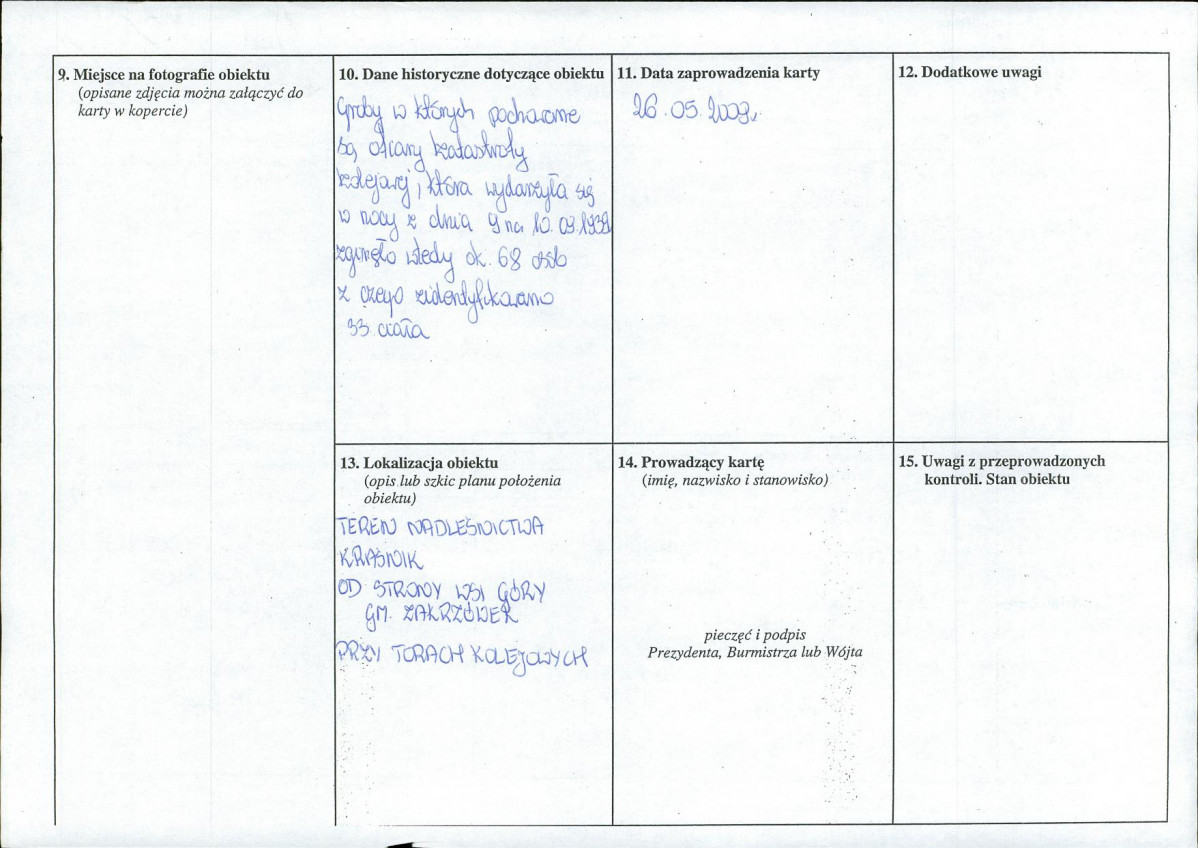 9. Miejsce na fotografie obiektu
(opisane zdjęcia można załączyć do
karty w kopercie)
10. Dane historyczne dotyczące obiektu
Groby w których pochowane
są ofiary katastrofy
kolejowej, która wydarzyła się
w nocy z dnia 9 na 10.09.1939
zginęło wtedy ok. 68 osób
z czego zidentyfikowano
33 ciała
11. Data zaprowadzenia karty
26.05.2009r.
12. Dodatkowe uwagi
13. Lokalizacja obiektu
(opis lub szkic planu położenia
obiektu)
TEREN NADLEŚNICTWA
KRAŚNIK
OD STRONY WSI GÓRY
GM. ZAKRZÓWEK
PRZY TORACH KOLEJOWYCH
14. Prowadzący kartę
(imię, nazwisko i stanowisko)
pieczęć i podpis
Prezydenta, Burmistrza lub Wójta
15. Uwagi z przeprowadzonych
kontroli. Stan obiektu